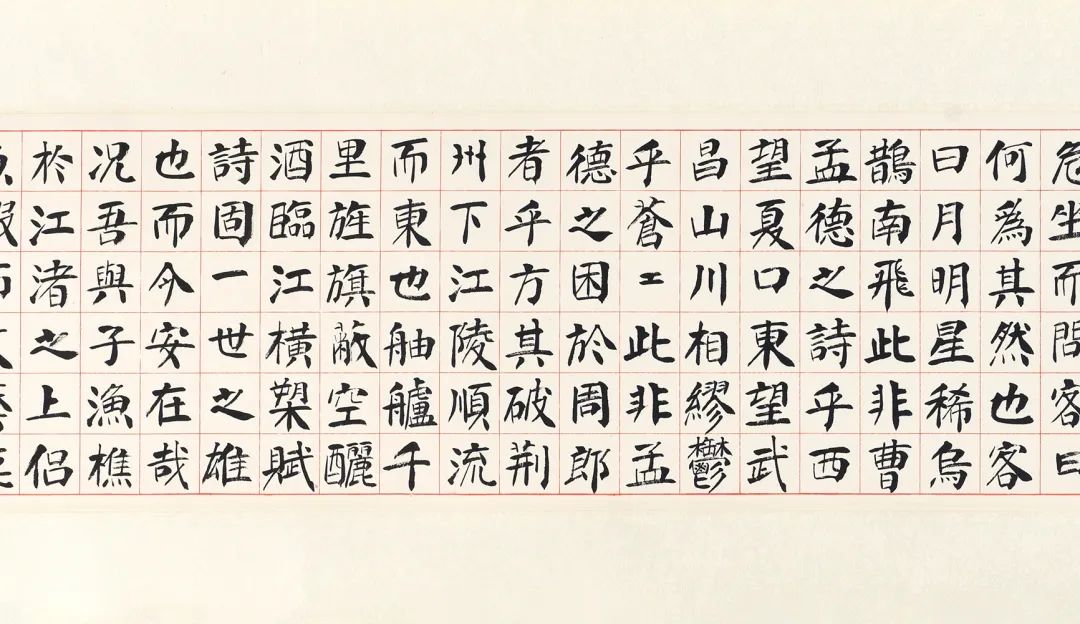 危坐而問客曰
何為其然也客
曰月明星稀烏
鵲南飛此非曹
孟德之詩乎西
望夏口東望武
昌山川相繆鬱
乎蒼〻此非孟
德之困於周郎
者乎方其破荊
州下江陵順流
而東也舳艫千
里旌旗蔽空釃
酒臨江橫槊賦
詩固一世之雄
也而今安在哉
况吾與子漁樵
於江渚之上侶